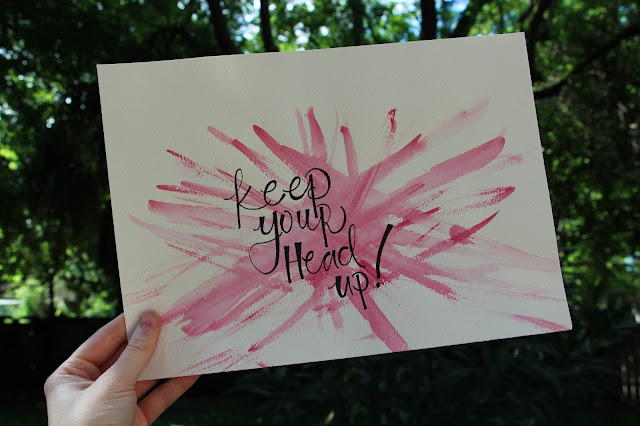 keep
your
Head
up!